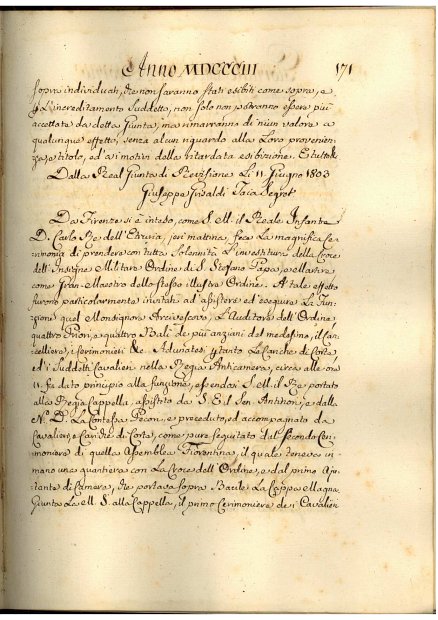 Anno MDCCCIII 171
sopra individuati, che non saranno stati esibiti come sopra, e
p. l'increditamento Suddetto, non solo non potranno essere più
accettate da detta Giunta, ma rimarranno di niun valore a
qualunque effetto, senza alcun riguardo alla Loro provenien
za, e titolo, ed a' motivi della ritardata esibizione. E tutto &c.
Dalla Real Giunta di Revisione Li 11 Giugno 1803
Giuseppe Segret.
Da Firenze si è inteso, come S. M. il Reale Infante
D. Carlo Re dell'Etruria, jeri mattina, fece La magnifica Ce-
rimonia di prendere con tutta Solennità L'investitura della Croce
dell'Insigne Militare Ordine di S. Stefano Papa, e Martire
come Gran Maestro dello stesso illustre Ordine. A tale effetto
furono particolarmente invitati ad assistere ed eseguire La Fun-
zione, quel Monsignore Arcivescovo, L'Auditore dell'Ordine
quattro Priori, e quattro Balì de più anziani del medesimo, il Can-
celliere, i Cerimonieri &c. Adunatesi p.tanto Le Cariche di Corte,
ed i Suddetti Cavalieri nella Regia Anticamera, circa alle ore
11. fu dato principio alla funzione, essendosi S. M. il Re portato
alla Regia Cappella, assistito da S. E. il Sen. Antinori, e dalla
N. D. La Contessa Pecori, e preceduto, ed accompagnato da
Cavalieri, e Cariche di Corte, come pure seguitato dal secondo Ceri-
moniere di quella Assemblea Fiorentina, il quale teneva in
mano una guantiera con La Croce dell'Ordine, e dal primo Aju-
tante di Camera, che portava sopra Bacile La Cappa Magna.
Giunta La M. S. alla Cappella, il primo Cerimoniere de' Cavalieri